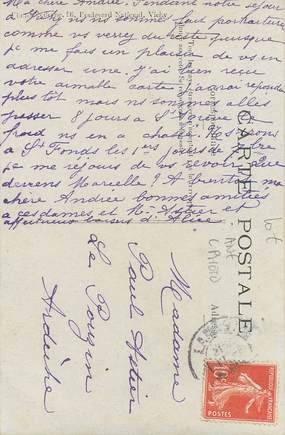 Ma chère Andrée. Pendant notre séjour
à
comme vs verrez du reste puisque
je me fais un plaisir de vs en
adresser une. J'ai bien reçu
votre aimable carte j'aurai répondu
plus tôt mais ns sommes allés
passer 8 jours à St
froid ns en a chassé. Ns serons
à St Fonds les 1ers jours de
je me réjouis de vs revoir. Que
deviens Marcelle? A bientôt ma
chère Andrée bonnes amitiés
à ces dames et Mr Astier et
affectueux baisers d'Alice
16, Boulevard National, Vichy
CARTE POSTALE
Madame
Paul Astier
Le Pouzin
Ardèche
REPUBLIQUE FRANÇAISE
10c